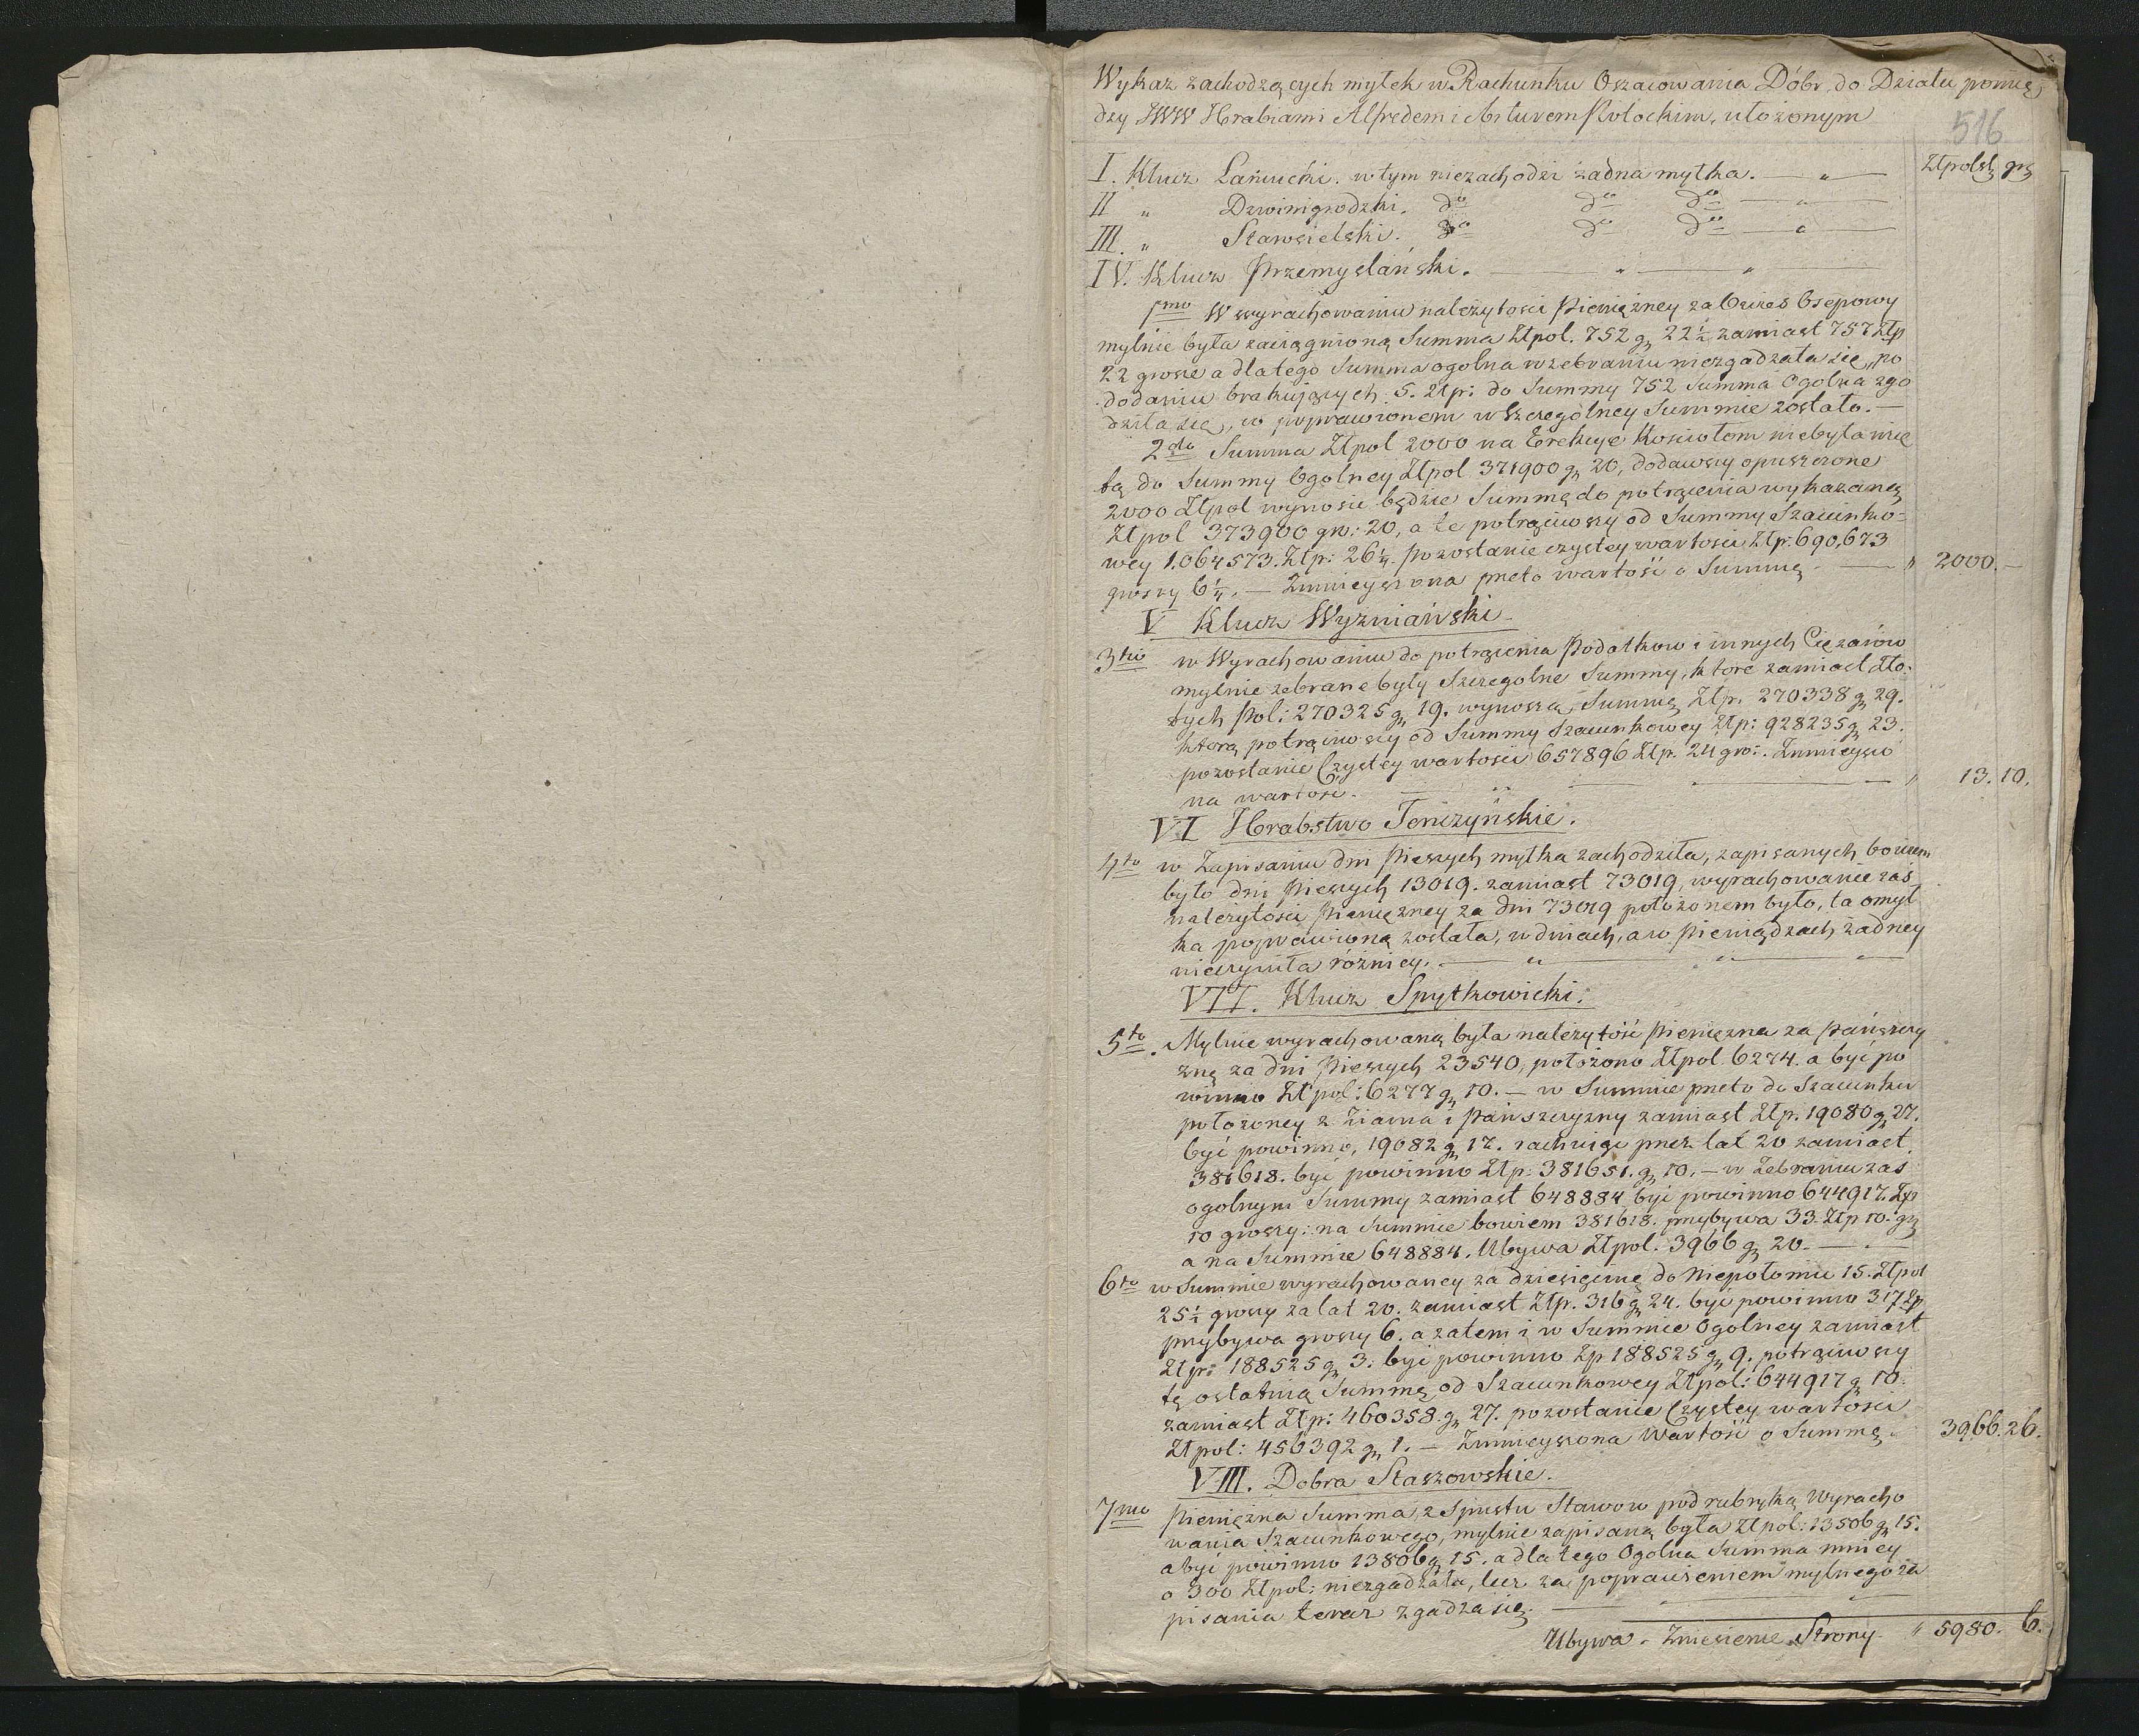 Wykaz zachodzących myłek w Rachunku Oszacowania Dóbr, do Działu pomię
dzy JWW Hrabiami Alfredem i Arturem Potockim, ułożonym
516
Złpolsk gr
I. Klucz Łańcucki. w tym niezachodzi żadna myłka. — " —
II " Dzwinigrodzki. do do do — " —
III. " Starosielski. do do do — " —
IV. Klucz Przemyslański. — " — " —
1mo W wyrachowaniu należytości Pieniężney za Owies Osepowy
mylnie była zaciągnioną Summa Złpol. 752 gr 22½ zamiast 757 Złp
22 grosze a dlatego Summa ogolna w zebraniu niezgadzała się, po
dodaniu brakujących 5. Złp: do Summy 752 Summa Ogolna zgo
dziła się, co poprawionem w szczególney Summie zostało. —
2do Summa Złpol 2000 na Erekcye Kosciołom niebyła wcię
tą do Summy Ogolney Złpol 371900 gr 20, dodawszy opuszczone
2000 Złpol wynosić będzie Summę do potrącenia wykazaną
Złpol 373900 gr: 20, a te potrąciwszy od Summy Szacunko-
wey 1.064573. Złp: 26¼. pozostanie czystey wartości Złp: 690,673
groszy 6¼. — Zmnieyszona przeto wartość o Summę — " 2000. —
V Klucz Wyżniański
3tio w Wyrachowaniu do potrącenia Podatkow i innych Ciężarów
mylnie zebrane były Szczegolne Summy, które zamiast Zło-
tych Pol: 270325 gr 19. wynoszą Summę Złp. 270338 gr 29.
którą potrąciwszy od Summy Szacunkowey Złp: 928235 gr 23.
pozostanie Czystey wartości 657896 Złp. 24 gro:. Zmnieyszo
na wartość. — " — " 13. 10.
VI Hrabstwo Tenczyńskie.
4to w Zapisaniu dni Pieszych myłka zachodziła, zapisanych bowiem
było dni Pieszych 13019. zamiast 73019, wyrachowanie zaś
należytości Pieniężney za dni 73019 położonem było, ta omył
ka poprawioną została, w dniach, a w Pieniądzach żadney
nieczyniła różnicy. — " — " —
VII. Klucz Spytkowicki.
5to. Mylnie wyrachowaną była należytość Pieniężna za Pańszczy
znę za dni Pieszych 23540, położono Złpol. 6274. a być po
winno Złpol: 6277 gr 10. — w Summie przeto do Szacunku
położoney z Ziarna i Pańszczyzny zamiast Złp. 19080 gr 27.
być powinno, 19082 gr 17. rachuiąc przez lat 20 zamiast
381618. być powinno Złp: 381651. gr 10. — w Zebraniu zaś
ogolnym Summy zamiast 648884 być powinno 644917. Złp
10 groszy: na Summie bowiem 381618. przybywa 33. Złp 10. gr
a na Summie 648884. Ubywa Złpol. 3966 gr 20. — " —
6to w Summie wyrachowaney za dziesięcinę do Niepołomic 15. Złpol
25½ groszy za lat 20. zamiast Złp. 316 gr 24. być powinno 317 Złp
przybywa groszy 6. a zatem i w Summie Ogolney zamiast
Złp: 188525 gr 3. być powinno Złp 188525 gr 9. potrąciwszy
tę ostatnią Summę, od Szacunkowey Złpol: 644917 gr 10.
zamiast Złp: 460358. gr 27. pozostanie Czystey wartości
Złpol: 456392 gr 1. — Zmnieyszona Wartość o Summę. 3966. 26.
VIII. Dobra Staszowskie.
7mo Pieniężna Summa, z Spustu Stawow pod rubryką Wyracho
wania Szacunkowego, mylnie zapisaną była Złpol: 13506 gr 15.
a być powinno 13806 gr 15. a dlatego Ogolna Summa mniey
o 300 Złpol: niezgadzała, lecz za poprawieniem mylnego za
pisania teraz zgadza się. — " —
Ubywa. Zniesienie Strony. " 5980. 6.